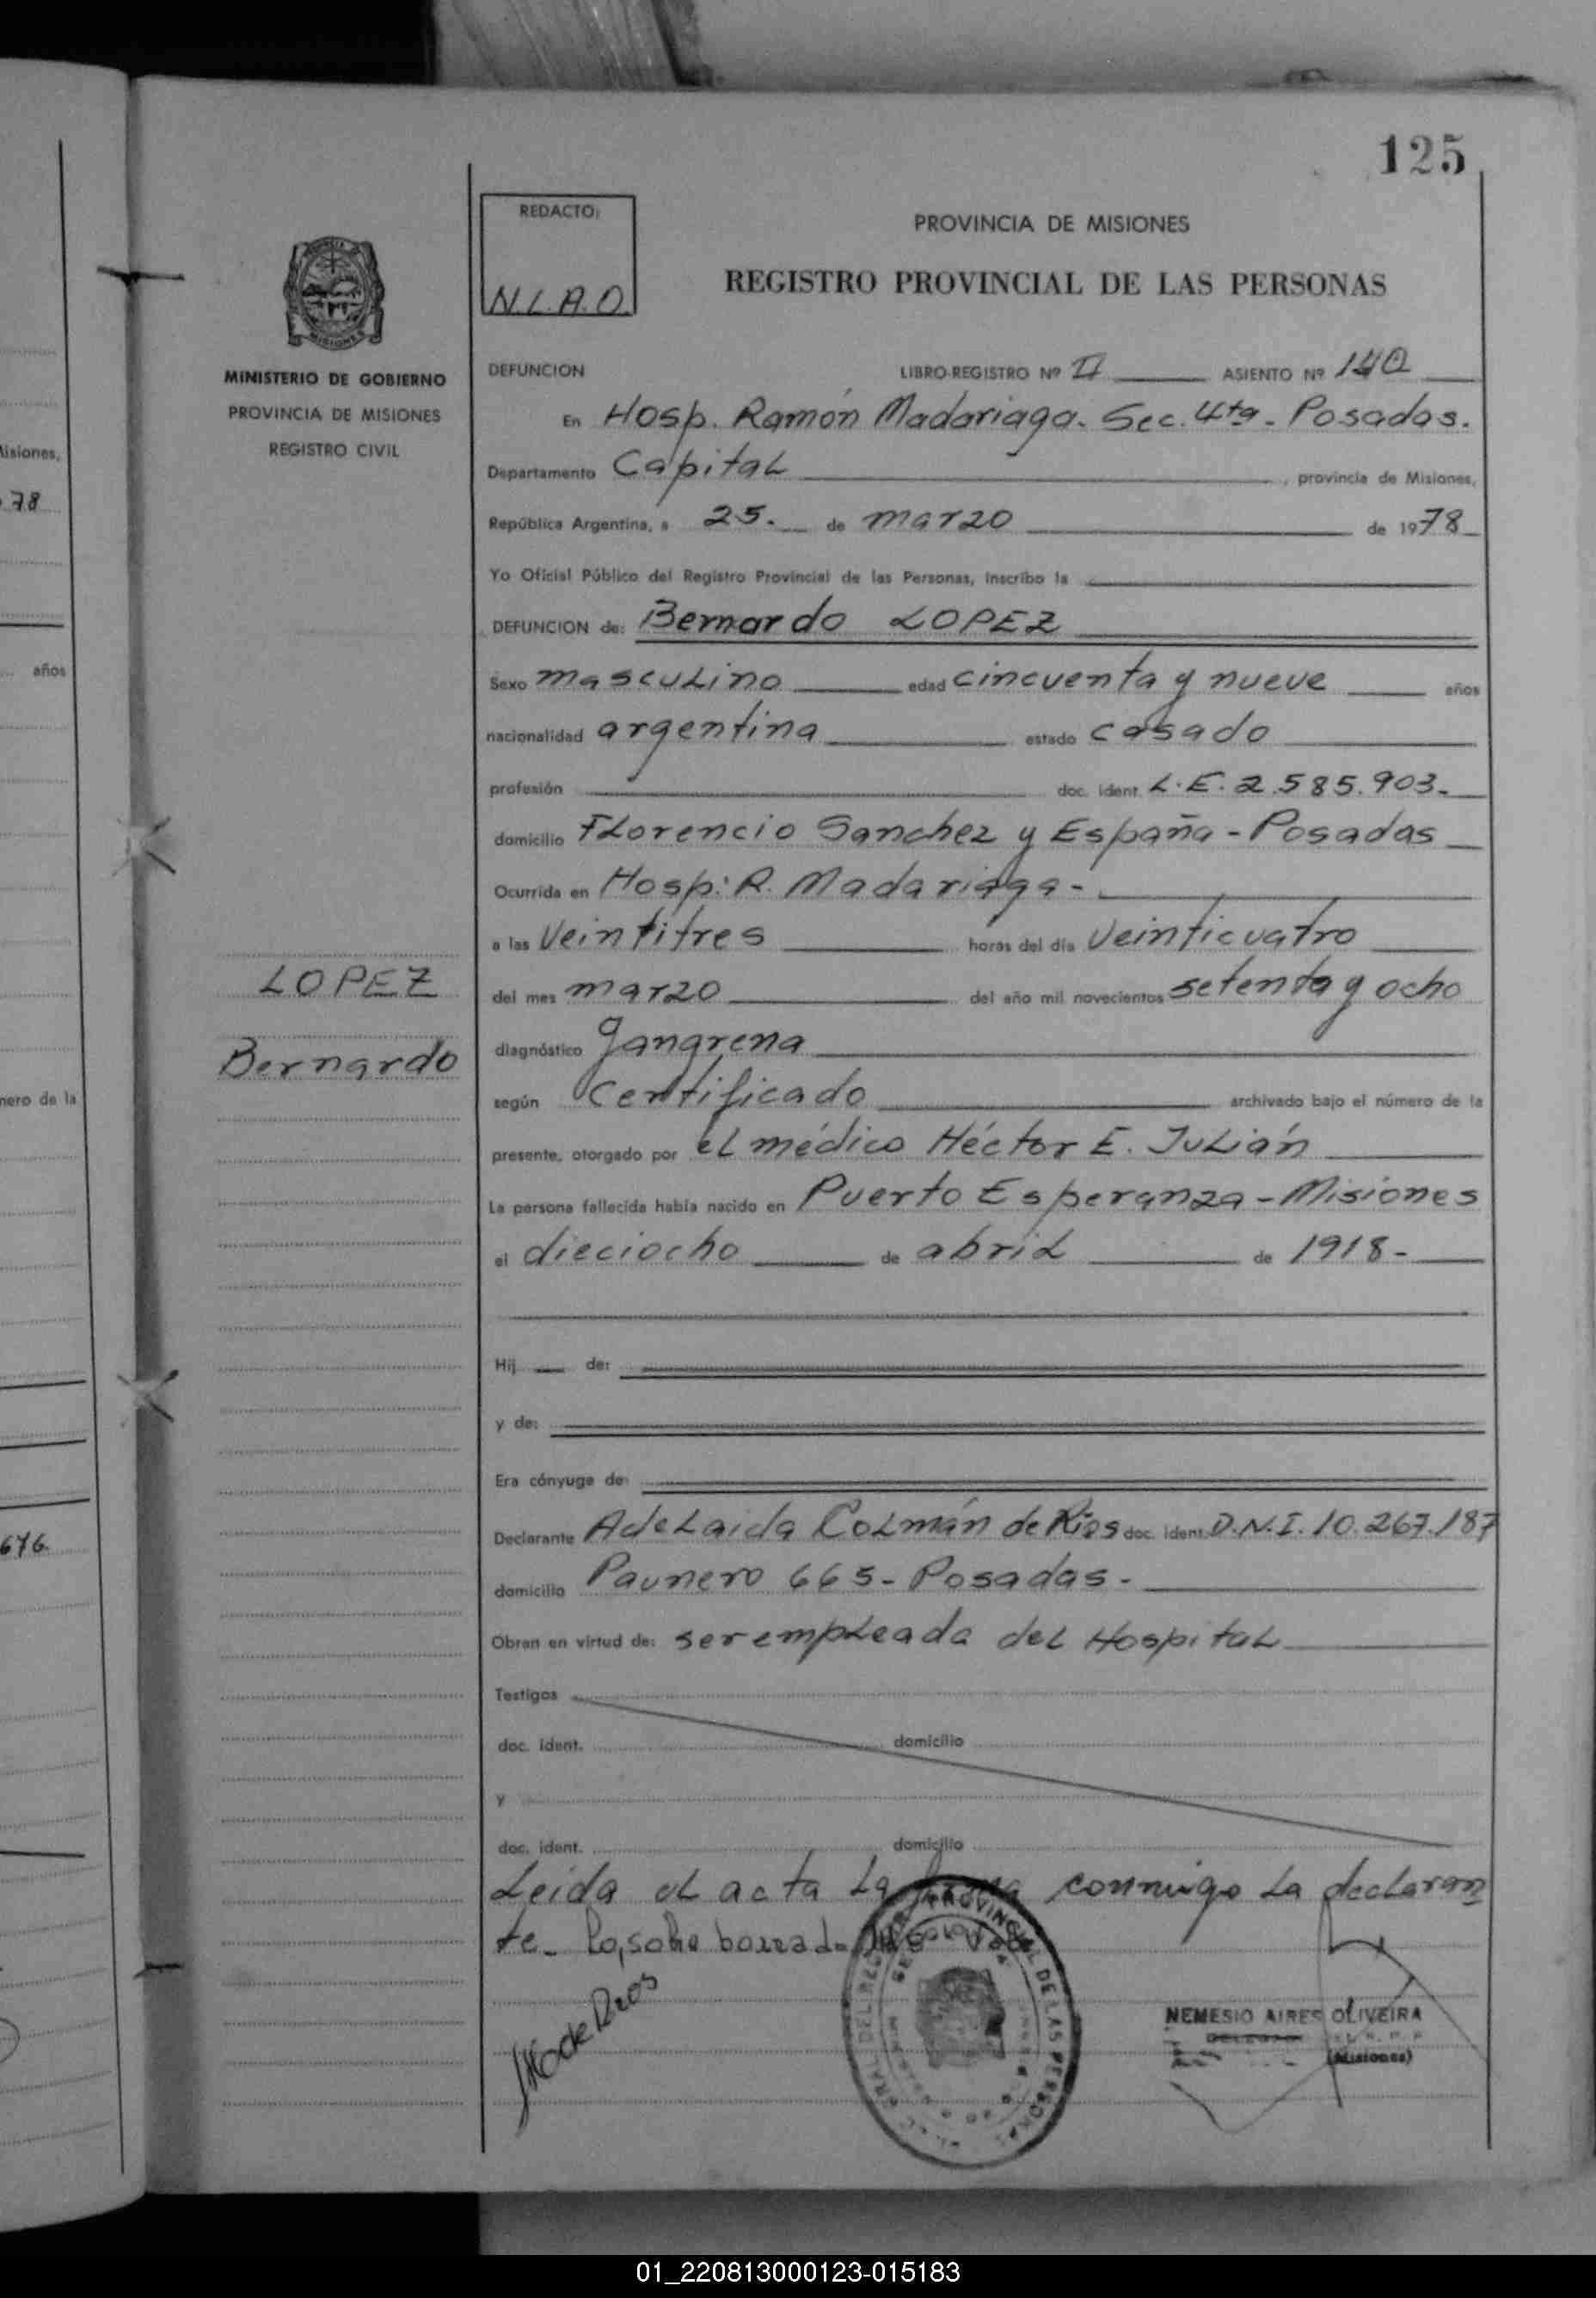 125
REDACTO:
N.L.A.O.
PROVINCIA DE MISIONES
REGISTRO PROVINCIAL DE LAS PERSONAS
MINISTERIO DE GOBIERNO
PROVINCIA DE MISIONES
REGISTRO CIVIL
DEFUNCION LIBRO-REGISTRO Nº II ASIENTO Nº 140
En Hosp. Ramón Madariaga. Sec. 4ta - Posadas.
Departamento Capital , provincia de Misiones,
República Argentina, a 25. de marzo de 1978
Yo Oficial Público del Registro Provincial de las Personas, inscribo la
DEFUNCION de: Bernardo LOPEZ
Sexo masculino edad cincuenta y nueve años
nacionalidad argentina estado casado
profesión doc. ident. L.E. 2.585.903.
domicilio Florencio Sanchez y España - Posadas
Ocurrida en Hosp: R. Madariaga -
a las Veintitres horas del día Veinticuatro
del mes marzo del año mil novecientos setenta y ocho
diagnóstico gangrena
según Certificado archivado bajo el número de la
presente, otorgado por el médico Héctor E. Julián
La persona fallecida había nacido en Puerto Esperanza - Misiones
el dieciocho de abril de 1918 -
Hij de:
y de:
Era cónyuge de:
Declarante Adelaida Colmán de Ríos doc. ident. D.N.I. 10.267.187
domicilio Paunero 665 - Posadas -
Obran en virtud de: ser empleada del Hospital
Testigos
doc. ident. domicilio
y
doc. ident. domicilio
Leida el acta la firma conmigo la declaran
te -
LOPEZ
Bernardo
NEMESIO AIRES OLIVEIRA
(Misiones)
Misiones,
78
años
nero de la
676
01_220813000123-015183